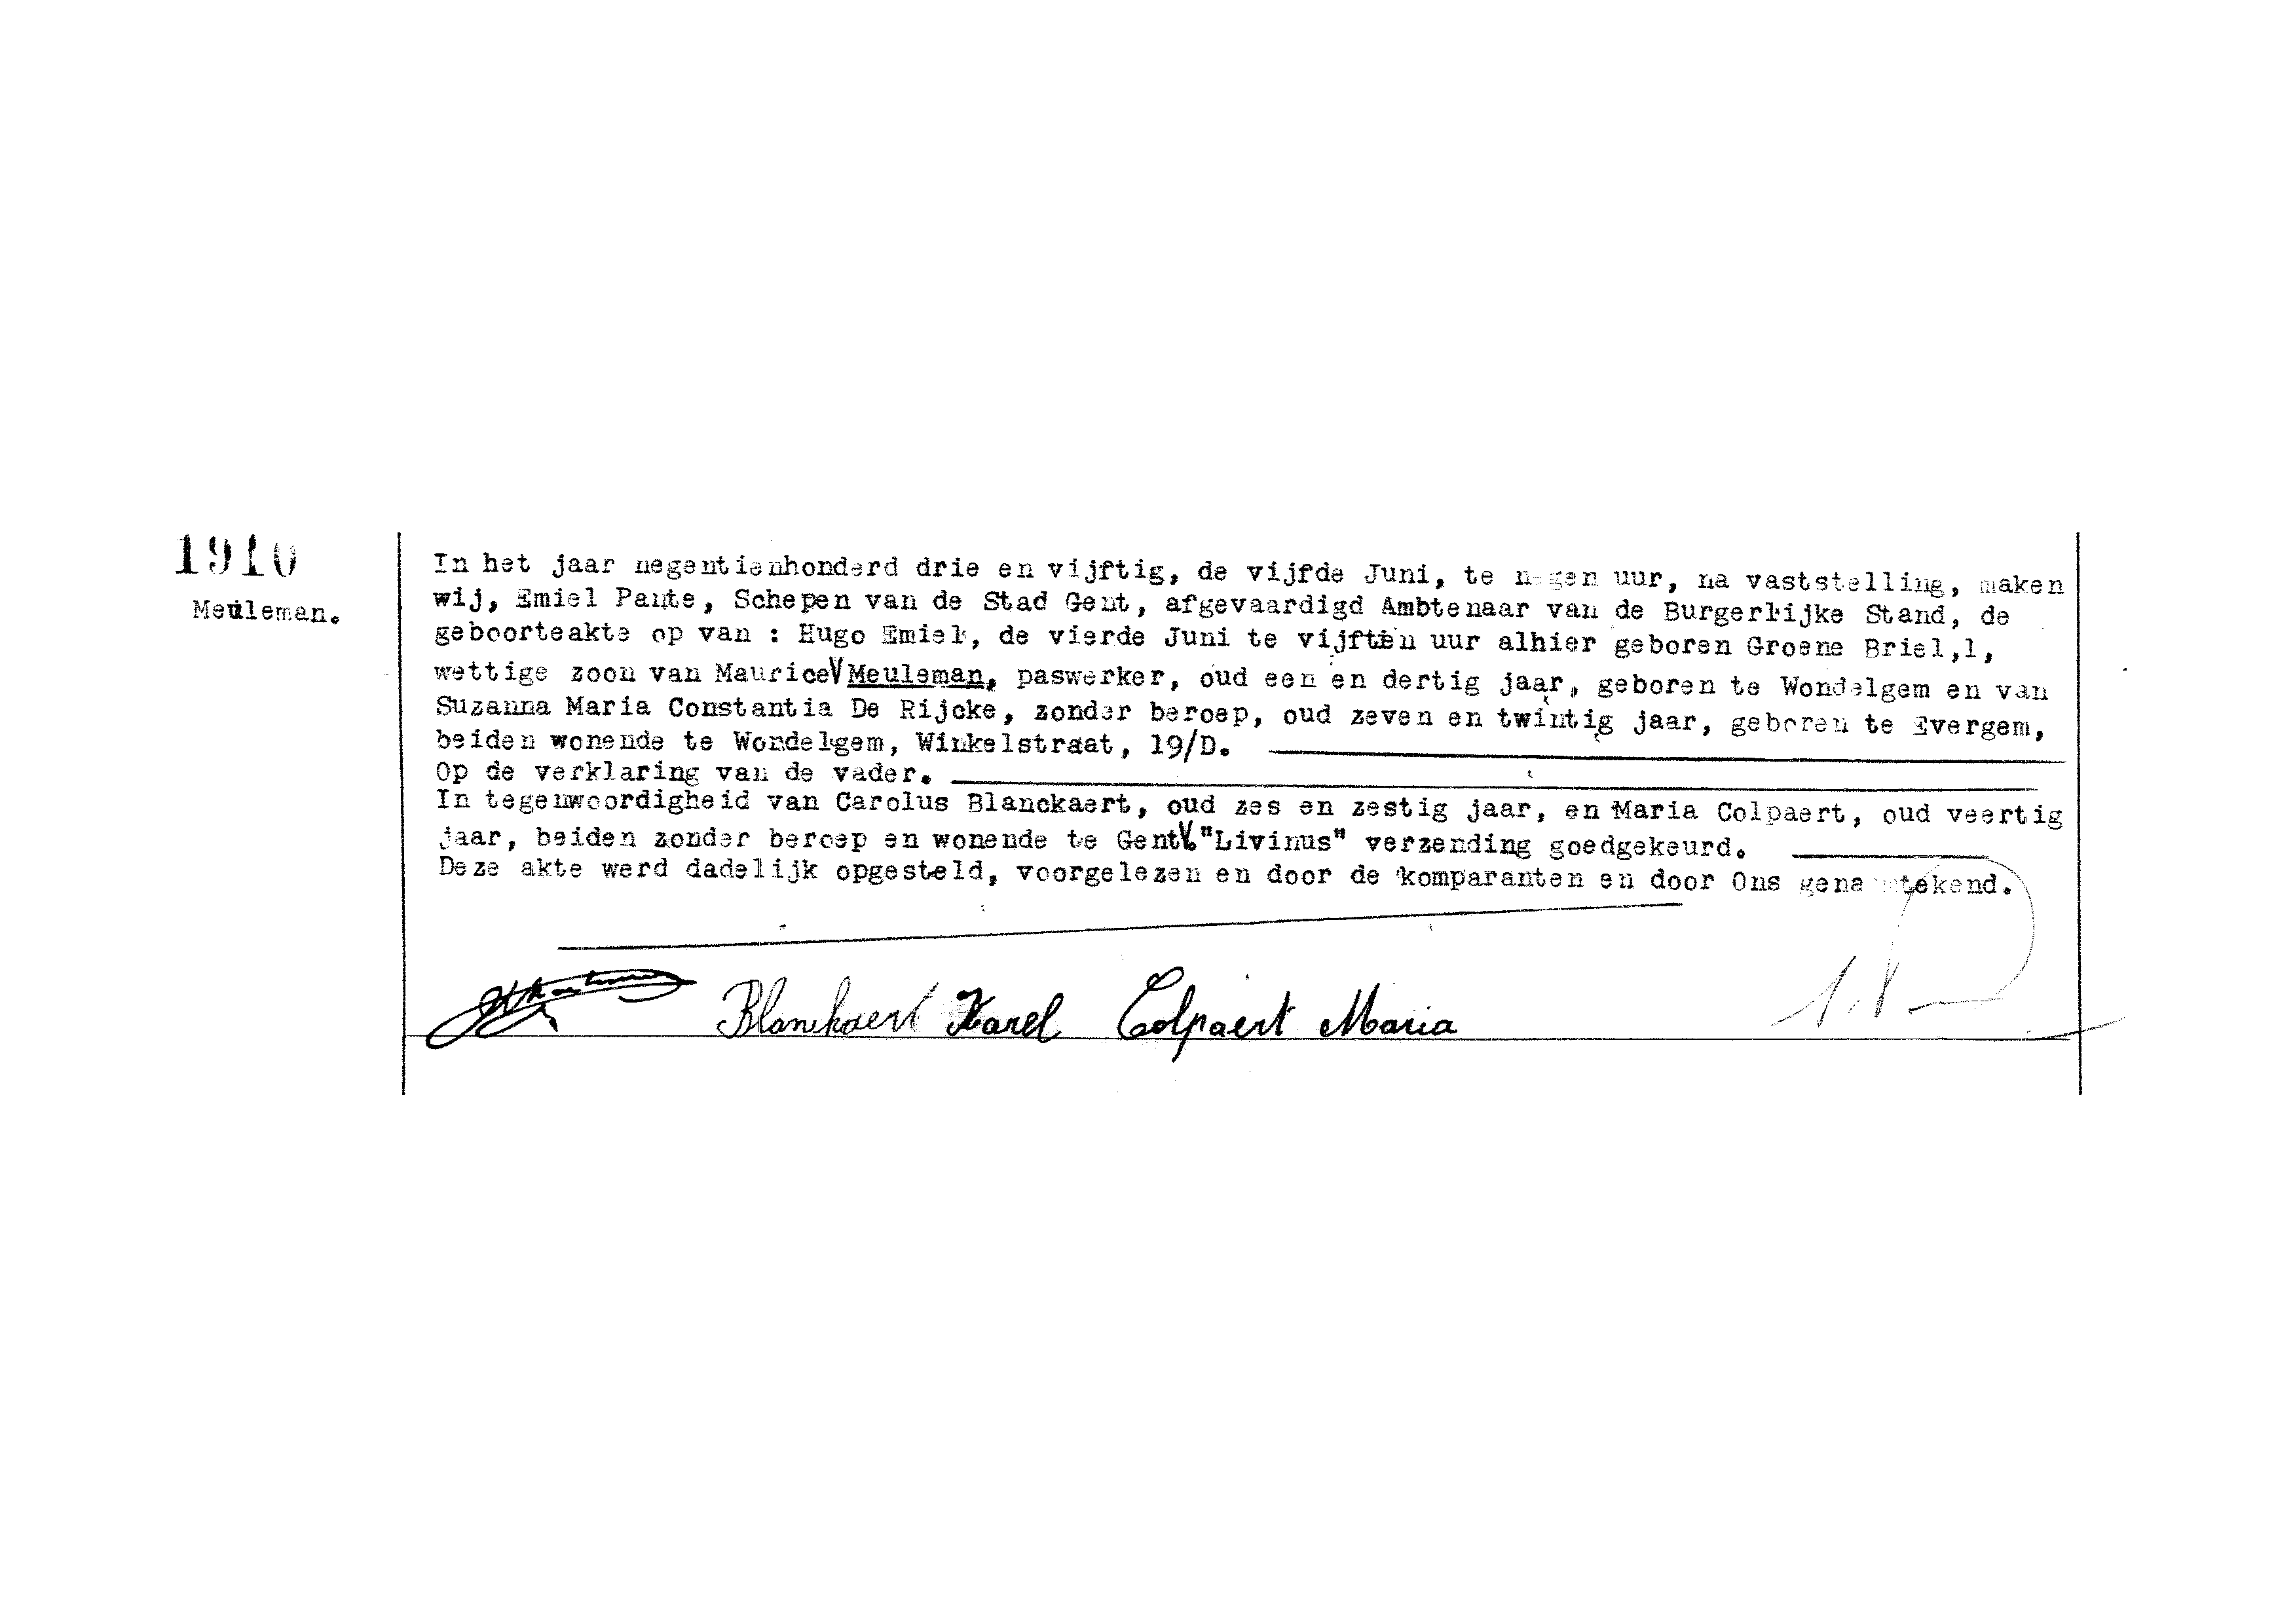 1910
Meuleman.
In het jaar negentienhonderd drie en vijftig, de vijfde Juni, te negen uur, na vaststelling, maken
wij, Emiel Pante, Schepen van de Stad Gent, afgevaardigd Ambtenaar van de Burgerlijke Stand, de
geboorteakte op van : Hugo Emiel, de vierde Juni te vijftien uur alhier geboren Groene Briel,1,
wettige zoon van Maurice V Meuleman, paswerker, oud een en dertig jaar, geboren te Wondelgem en van
Suzanna Maria Constantia De Rijcke, zonder beroep, oud zeven en twintig jaar, geboren te Evergem,
beiden wonende te Wondelgem, Winkelstraat, 19/D.
Op de verklaring van de vader.
In tegenwoordigheid van Carolus Blanckaert, oud zes en zestig jaar, en Maria Colpaert, oud veertig
jaar, beiden zonder beroep en wonende te Gent V. "Livinus" verzending goedgekeurd.
Deze akte werd dadelijk opgesteld, voorgelezen en door de komparanten en door Ons genaamtekend.
Blanckaert Karel Colpaert Maria